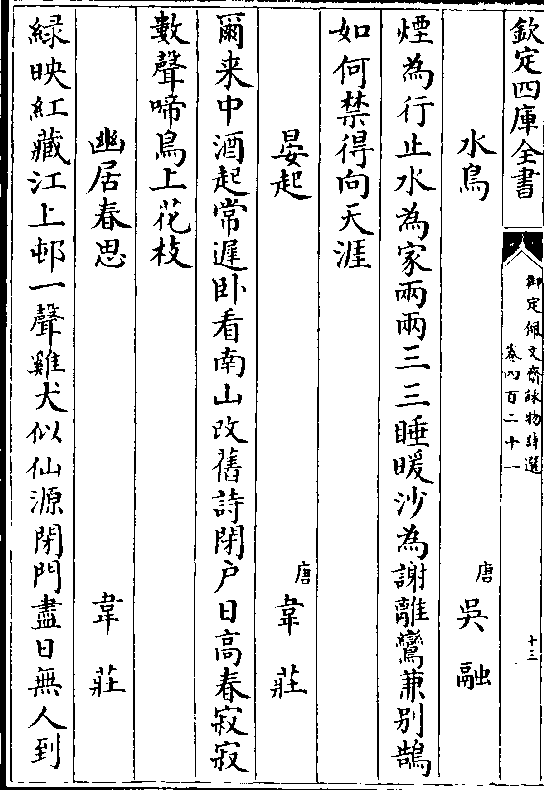 欽定四庫全書
御定佩文齋詠物詩選
卷四百二十一
十三
水鳥
唐 吳融
煙為行止水為家兩兩三三睡暖沙為謝離鸞兼别鵠
如何禁得向天涯
晏起
唐 韋莊
爾来中酒起常遲卧看南山改舊詩閉户日高春寂寂
數聲啼鳥上花枝
幽居春思
韋莊
緑映紅藏江上邨一聲雞犬似仙源閉門盡日無人到